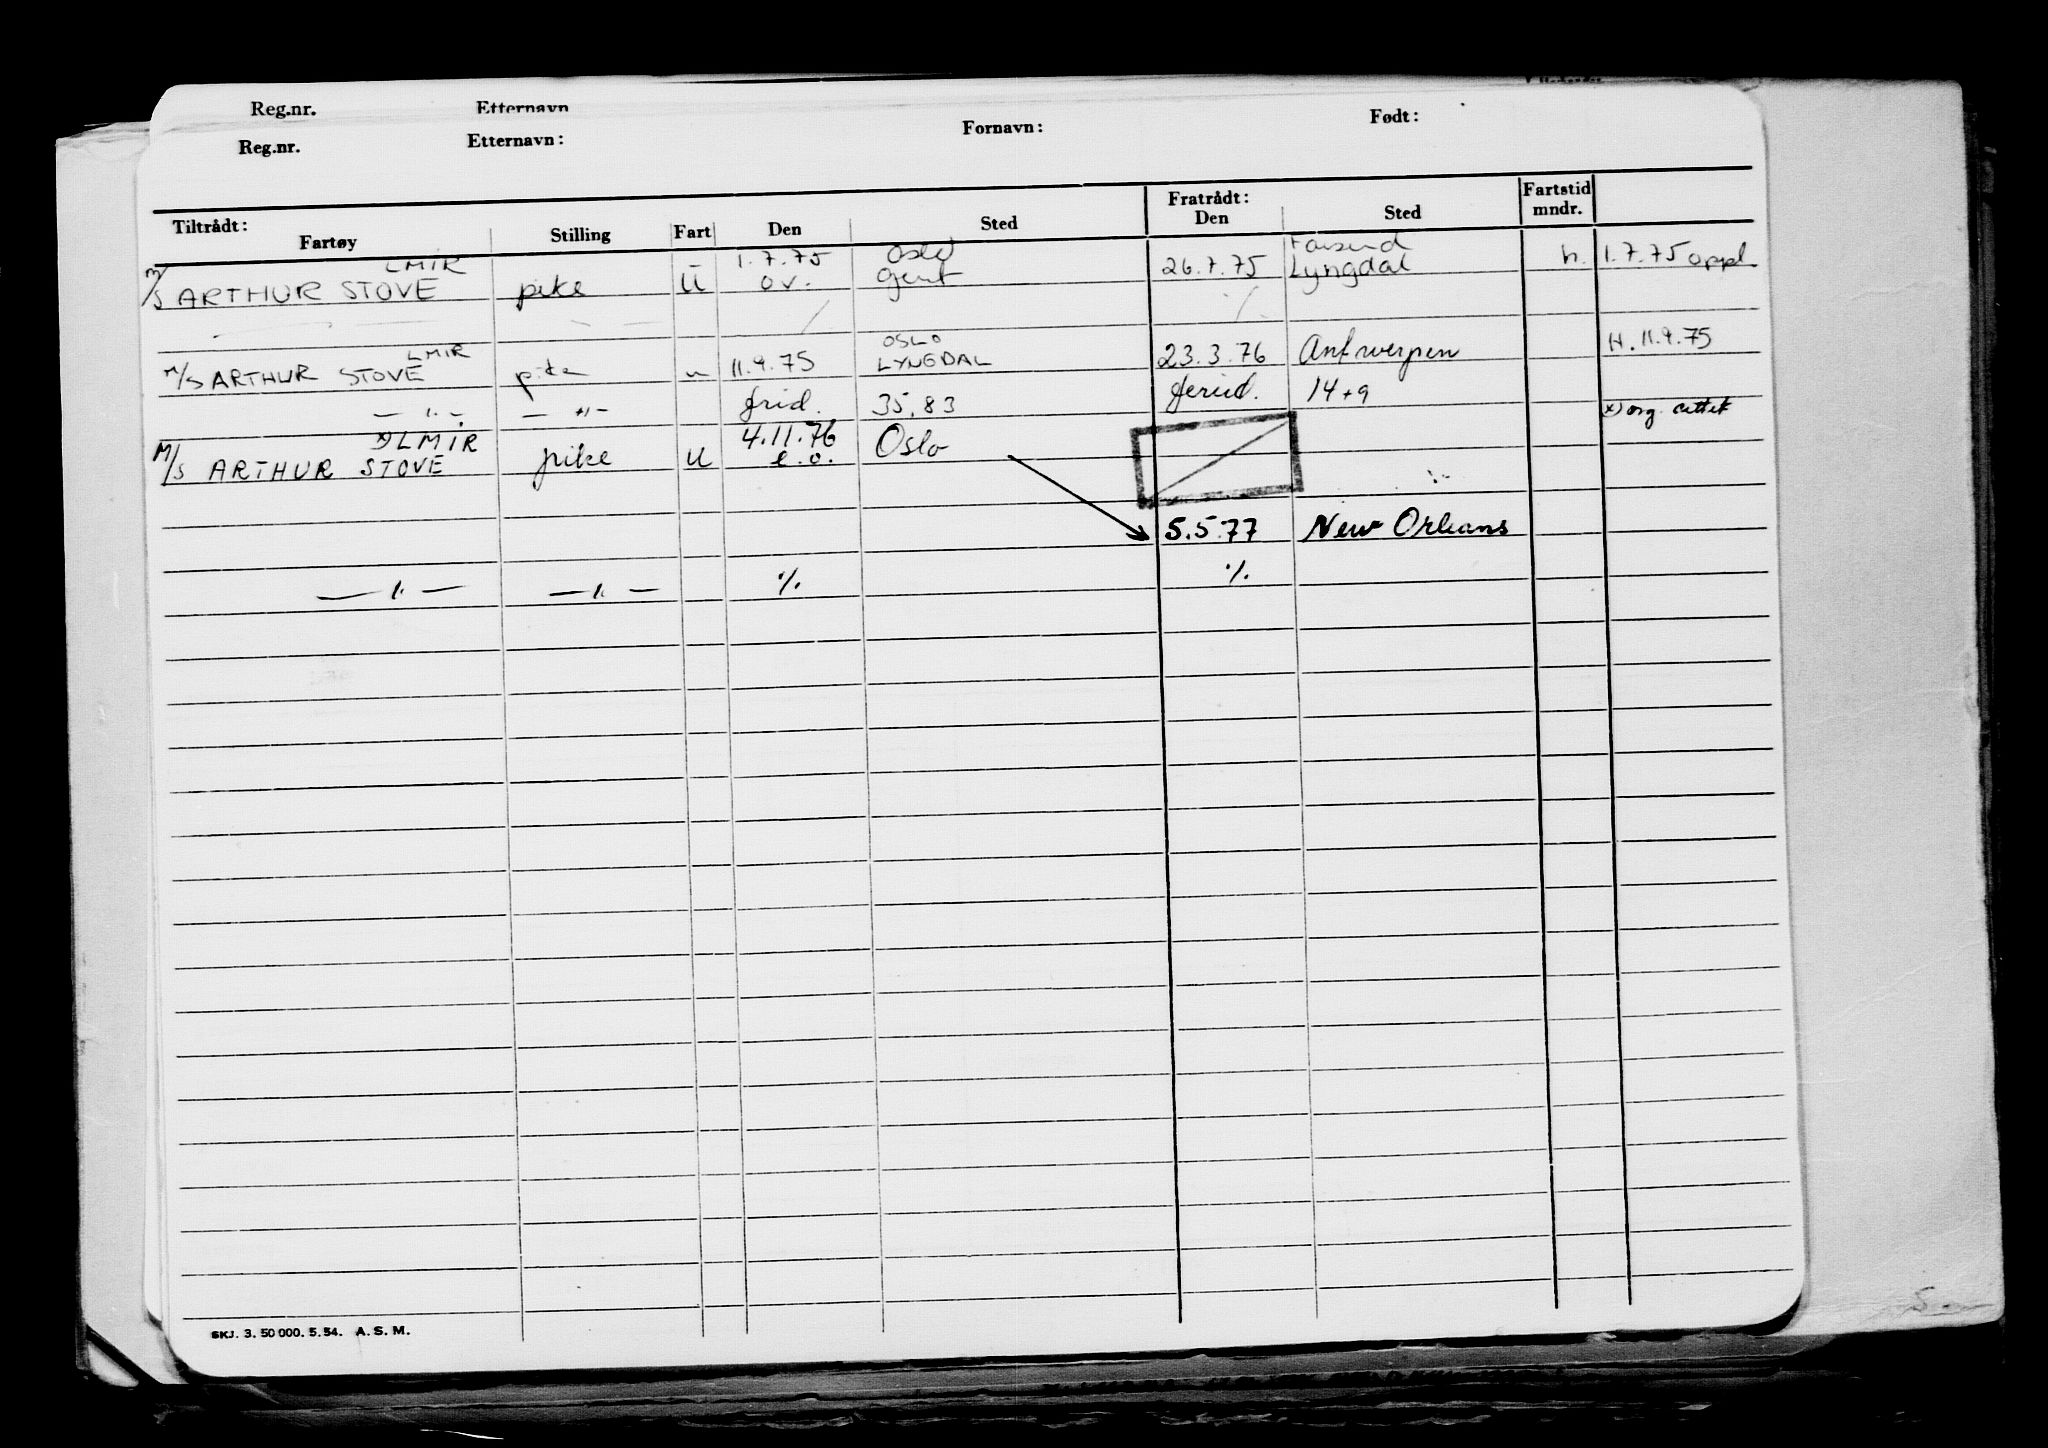 Reg.nr. Etternavn
Reg.nr. Etternavn: Fornavn: Født:
Tiltrådt: Fratrådt: Fartstid
Fartøy Stilling Fart Den Sted Den Sted mndr.
LMIR 1.7.75 Oslo
M/S ARTHUR STOVE pike U ov. Gent 26.7.75 Lyngdal h. 1.7.75 oppl
LMIR OSLO
M/S ARTHUR STOVE pike u 11.9.75 LYNGDAL 23.3.76 Antwerpen H. 11.9.75
— " — — " — frid. 35,83 feried. 14+9
x) LMIR 4.11.76 x) org.
M/S ARTHUR STOVE pike U e.o. Oslo
5.5.77 New Orleans
— " — — " — ./. ./.
SKJ. 3. 50 000. 5. 54. A. S. M.